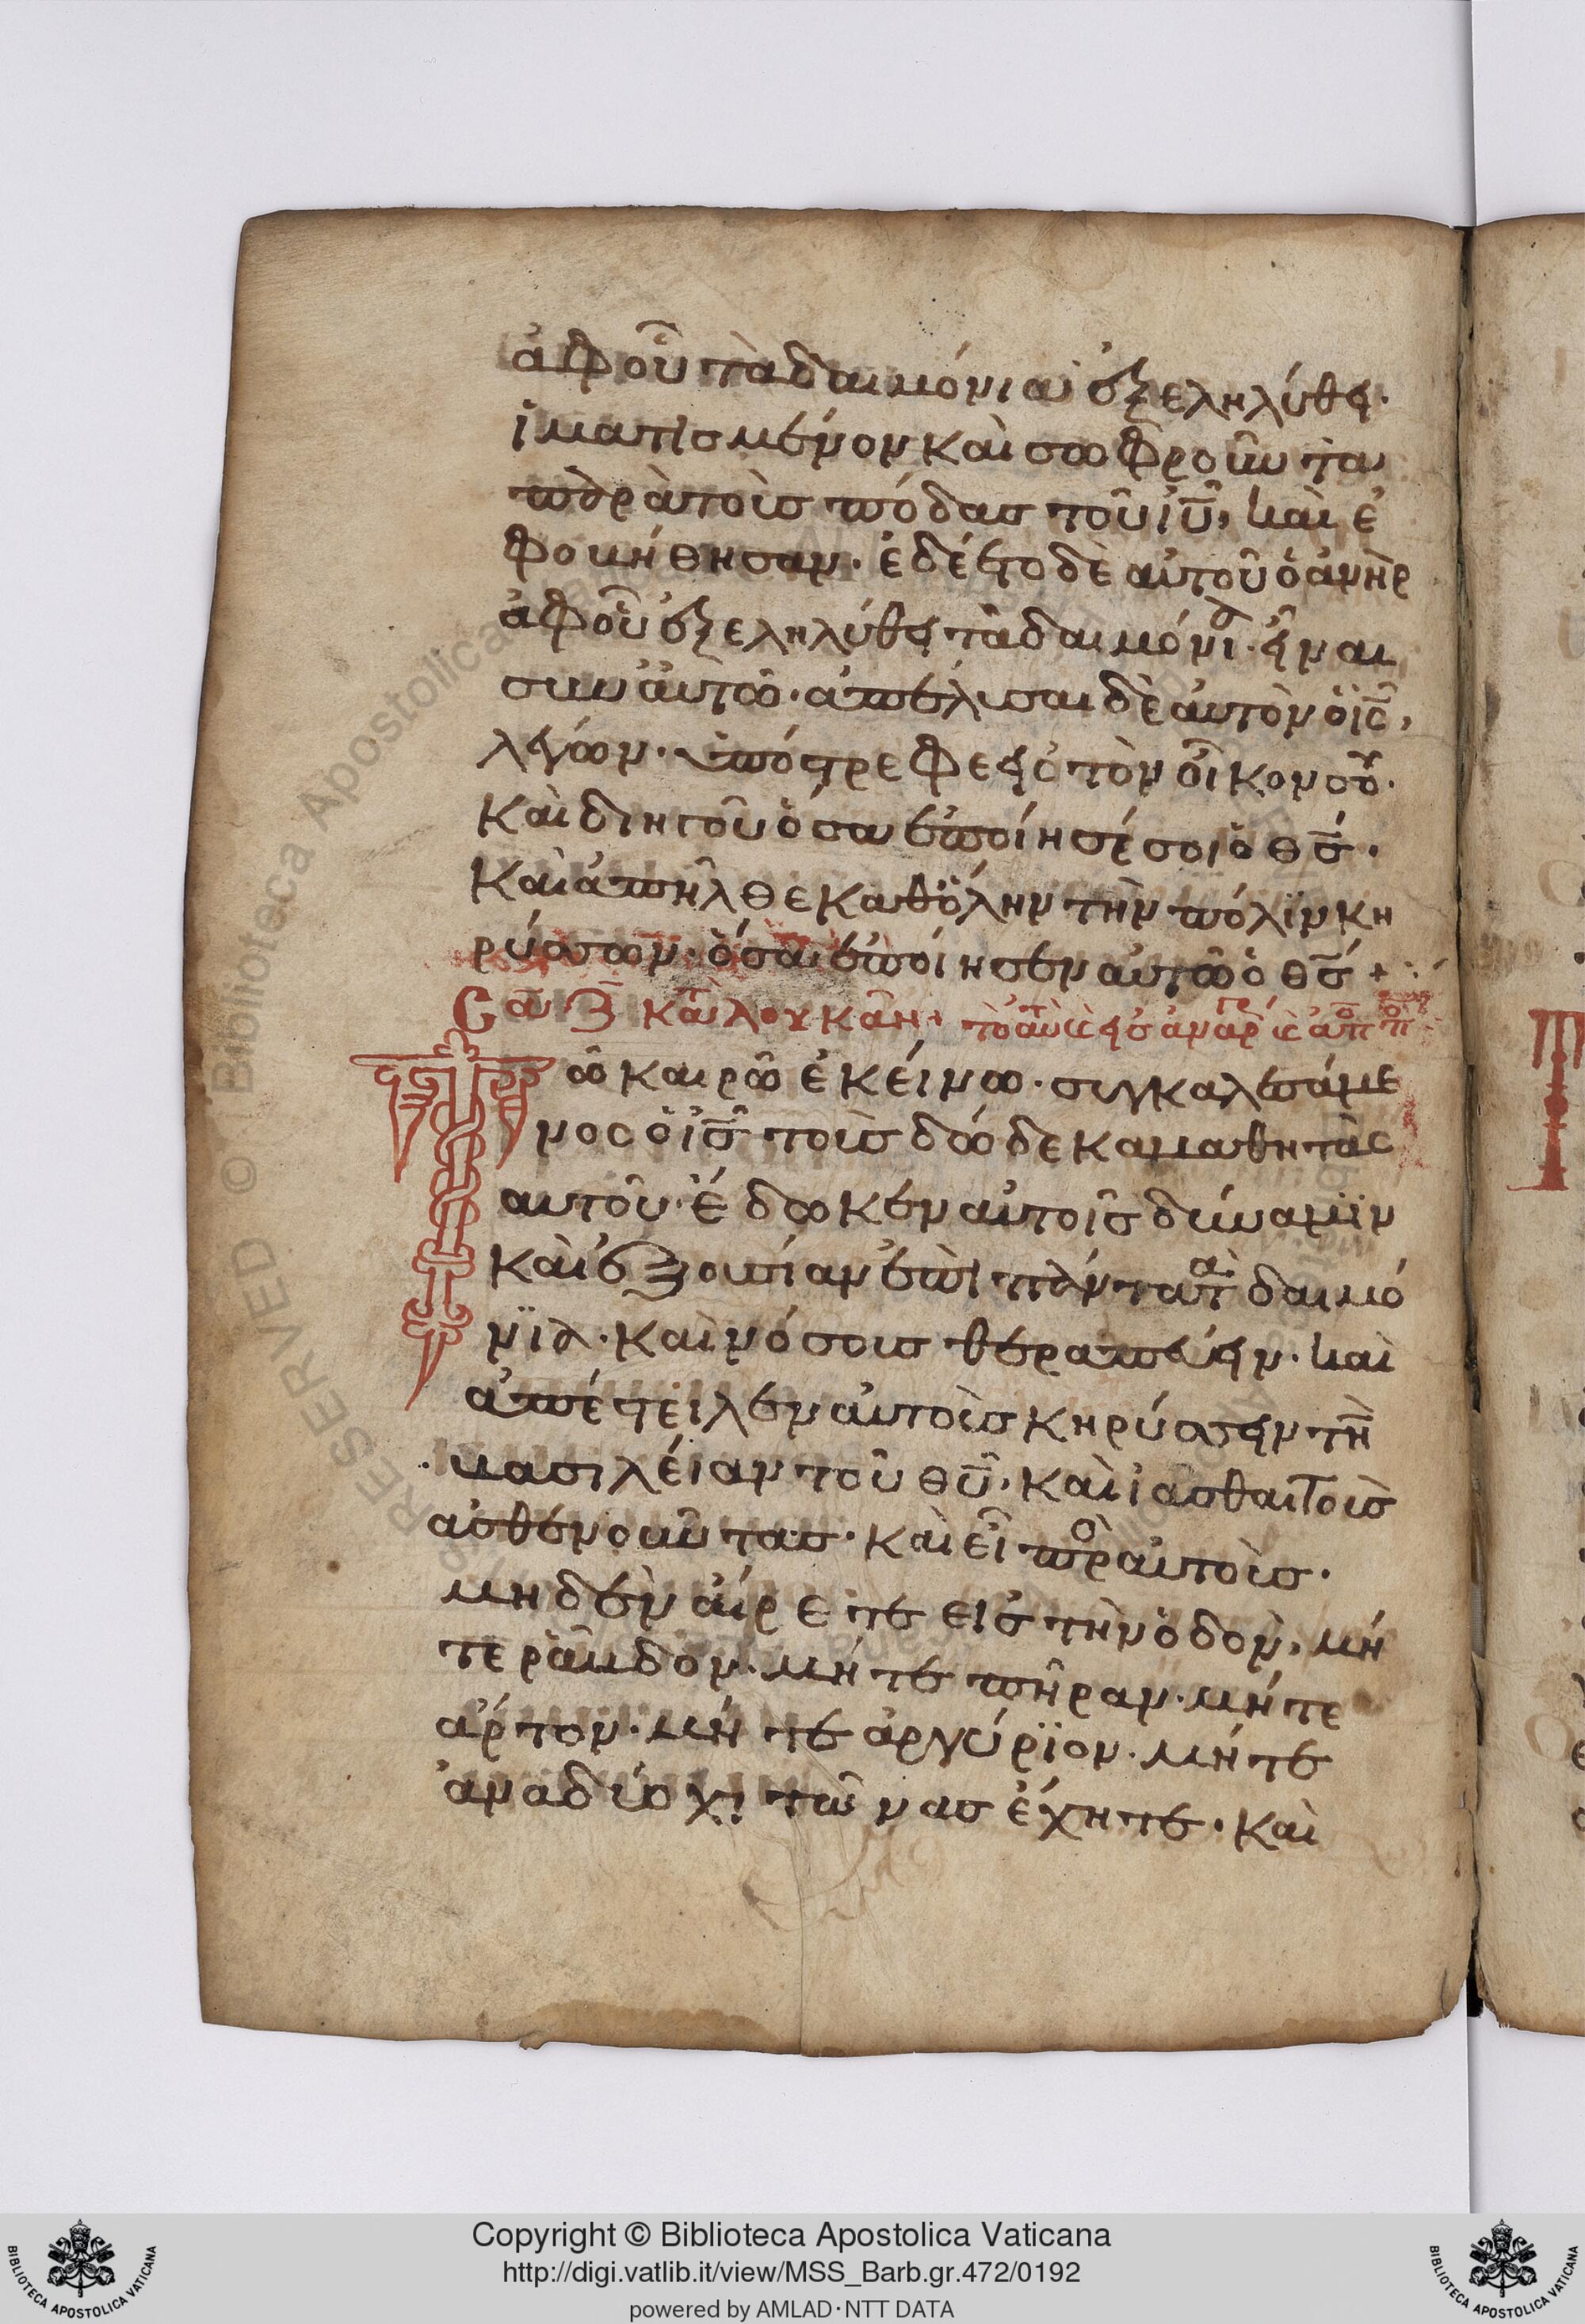 ἀφ οὗ τὰ δαιμόνια ἐξεληλύθει·
ἱματισμένον καὶ σωφρονοῦντα
παρὰ τοὺς πόδας τοῦ ιυ, καὶ ἐ
φοβήθησαν· ἐδέετο δὲ αὐτοῦ ὁ ἀνὴρ
ἀφ οὗ ἐξεληλύθει τὰ δαιμόνια· εἶναι
σὺν αὐτῶ· ἀπέλυσαι δὲ αὐτὸν ὁ ις,
λέγων· ὑπόστρεφε εἰς τὸν οἶκον σου·
καὶ διηγοῦ ὅσα ἐποίησέ σοι ὁ θς·
καὶ ἀπῆλθε καθ ὅλην τὴν πόλιν κη
ρύσσων· ὅσα ἐποίησεν αὐτῶ ὁ θς +
κατὰ λουκᾶν
Τῶ καιρῶ ἐκείνω· συγκαλεσάμε
νος ὁ ις τοὺς δώδεκα μαθητὰς
αὐτοῦ· ἔδωκεν αὐτοῖς δύναμϊν
καὶ ἐξουσίαν ἐπὶ πάντα τὰ δαιμό
νϊα· καὶ νόσους θεραπεύειν· καὶ
ἀπέστειλεν αὐτοὺς κηρύσσειν τὴν
βασιλείαν τοῦ θυ, καὶ ἰᾶσθαι τοὺς
ἀσθενοῦντας· καὶ εἶ πρὸς αὐτοὺς·
μηδὲν αἴρετε εἰς τὴν ὁδὸν, μή
τε ῥάβδον· μήτε πῆραν· μήτε
ἄρτον· μήτε ἀργύρϊον· μήτε
ἀνα δύο χιτῶνας ἔχητε· καὶ
Copyright © Biblioteca Apostolica Vaticana
http://digi.vatlib.it/view/MSS_Barb.gr.472/0192
powered by AMLAD·NTT DATA
RESERVED © Biblioteca Apostolica Vaticana
BIBLIOTECA APOSTOLICA VATICANA
BIBLIOTECA APOSTOLICA VATICANA